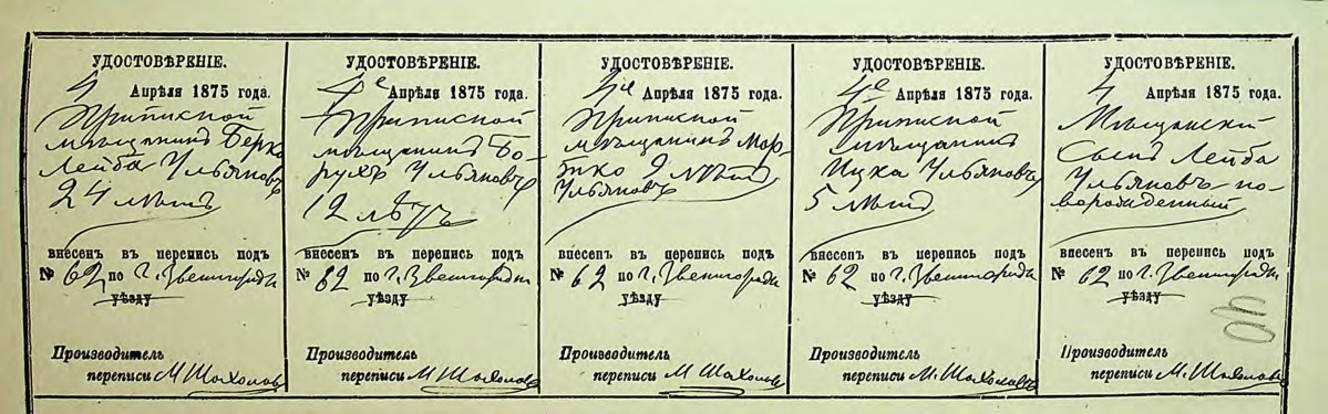 УДОСТОВѢРЕНІЕ.
4 Апрѣля 1875 года.
Приписной
мѣщанинъ Берко
Лейба Ульяновъ
24 лѣтъ
внесенъ въ перепись подъ
№ 62 по г. Звенигородки
уѣзду
Производитель
переписи М Шохоловъ
УДОСТОВѢРЕНІЕ.
4е Апрѣля 1875 года.
Приписной
мѣщанинъ Бо-
рухъ Ульяновъ
12 лѣтъ
внесенъ въ перепись подъ
№ 62 по г. Звенигородки
уѣзду
Производитель
переписи М Шохоловъ
УДОСТОВѢРЕНІЕ.
4е Апрѣля 1875 года.
Приписной
мѣщанинъ Мор-
тко 9 лѣтъ
Ульяновъ
внесенъ въ перепись подъ
№ 62 по г. Звенигородки
уѣзду
Производитель
переписи М Шохоловъ
УДОСТОВѢРЕНІЕ.
4е Апрѣля 1875 года.
Приписной
мѣщанинъ
Ицка Ульяновъ
5 лѣтъ
внесенъ въ перепись подъ
№ 62 по г. Звенигородки
уѣзду
Производитель
переписи М. Шохоловъ
УДОСТОВѢРЕНІЕ.
4 Апрѣля 1875 года.
Мѣщанскій
Сынъ Лейба
Ульяновъ но-
ворожденный
внесенъ въ перепись подъ
№ 62 по г. Звенигородки
уѣзду
Производитель
переписи М. Шохоловъ